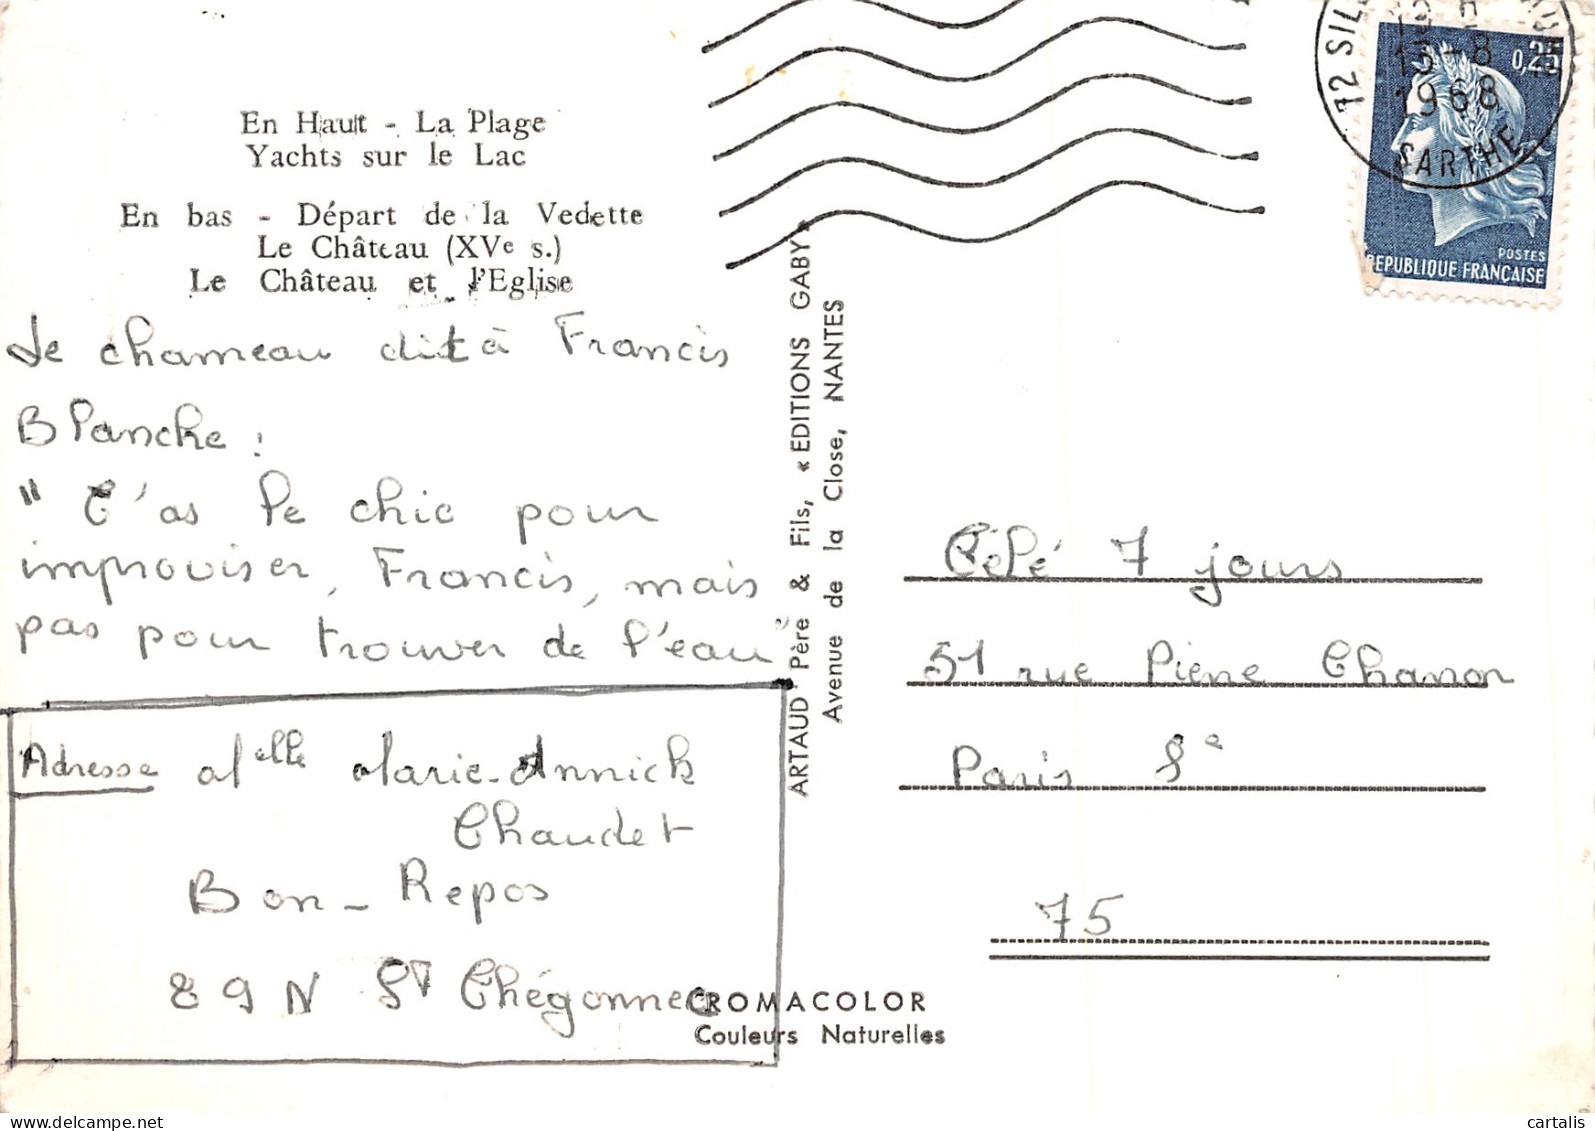 En Haut - La Plage
Yachts sur le Lac
En bas - Départ de la Vedette
Le Château (XVe s.)
Le Château et l'Eglise
Le chameau dit à Francis
Blanche :
" T'as le chic pour
improviser, Francis, mais
pas pour trouver de l'eau"
Adresse Melle Marie-Annick
Chaudet
Bon-Repos
29N St Thégonnec
ARTAUD Père & Fils, « EDITIONS GABY »
Avenue de la Close, NANTES
CROMACOLOR
Couleurs Naturelles
72 SILL
13-8
1968
SARTHE
0,25
POSTES
REPUBLIQUE FRANÇAISE
Télé 7 jours
51 rue Pierre Charron
Paris 8e
75
cartalis